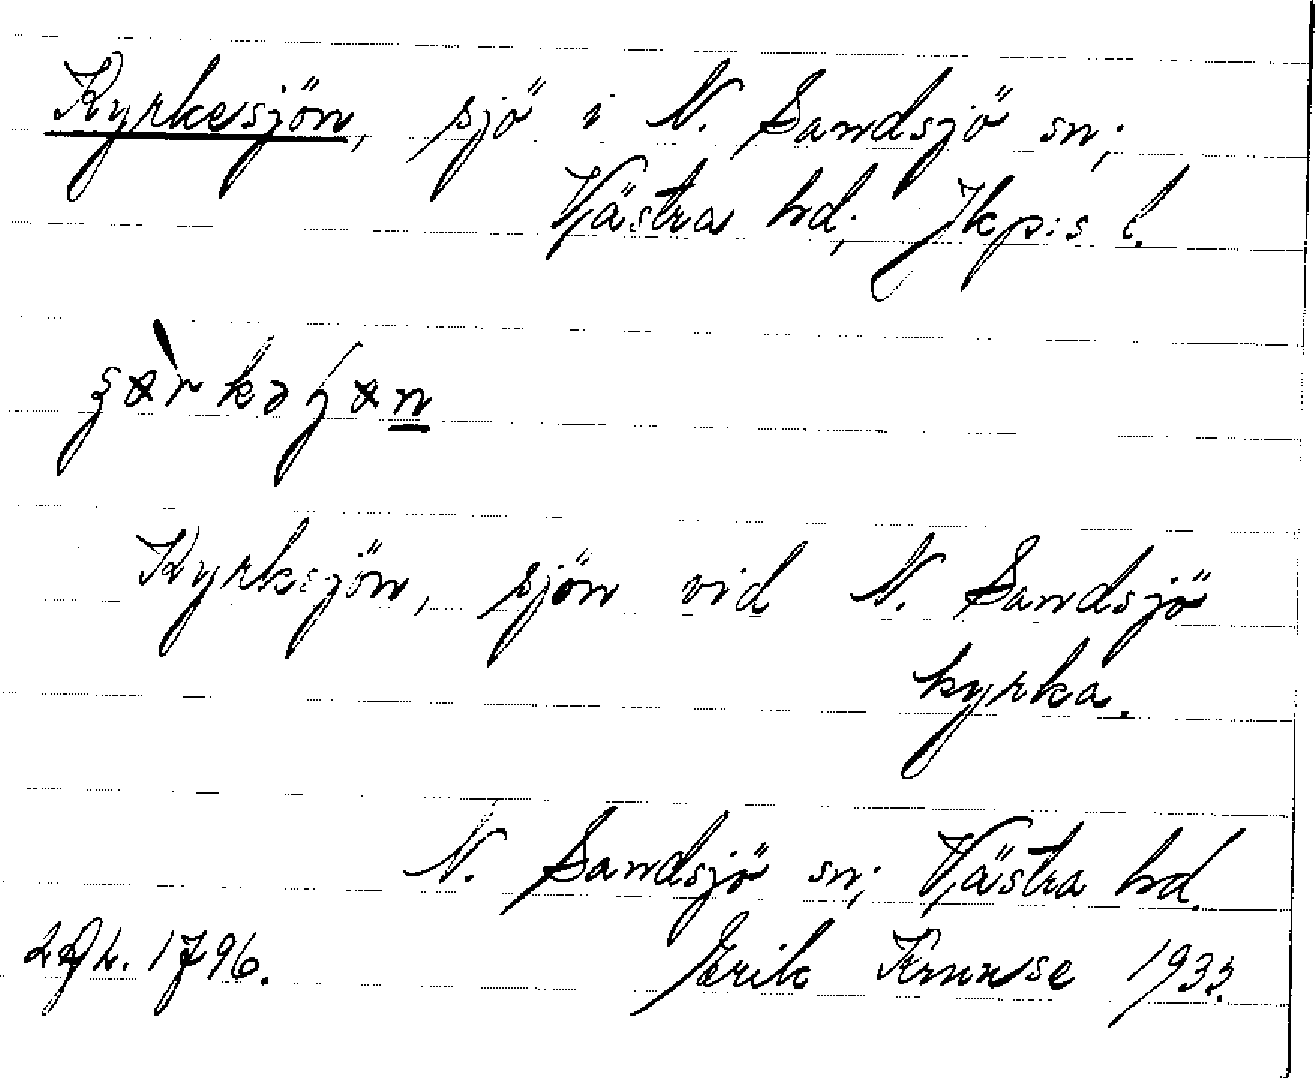 Kyrkesjön, sjö i N. Sandsjö sn;
Västra hd; Jkp:s l.
Kyrksjön, sjön vid N. Sandsjö
kyrka.
N. Sandsjö sn; Västra hd.
1796. Erik Kruuse 1933.